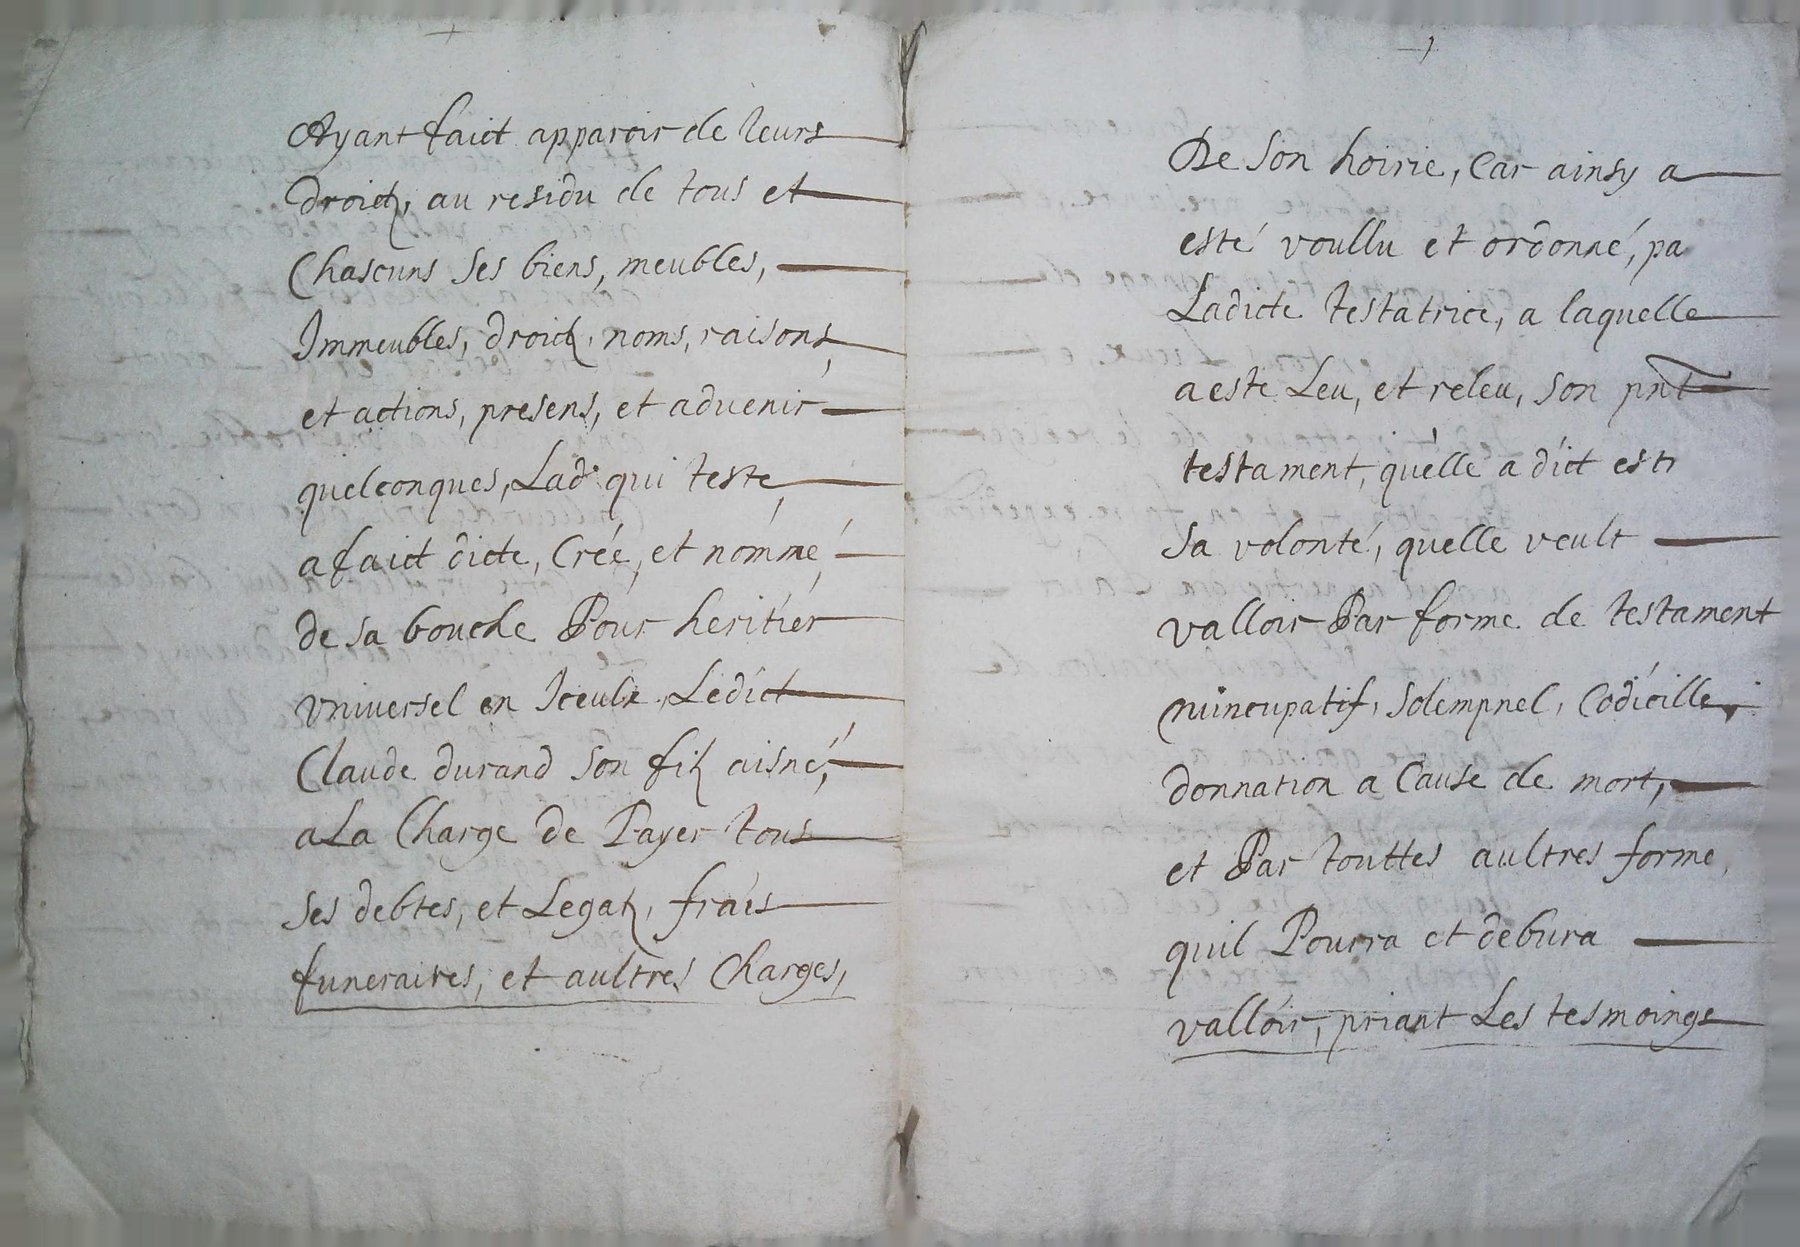 Ayant faict apparoir de leurs
droictz, au residu de tous et
Chascuns ses biens, meubles,
Immeubles, droictz, noms, raisons,
et actions, presens, et advenir
quelconques, Lad. qui teste,
a faict dicte, Crée, et nommé
de sa bouche Pour heritier
vniversel en Iceulx, Ledict
Claude durand son filz aisné,
a La Charge de Payer tous
ses debtes, et Legatz, frais
funeraires, et aultres Charges,
De son hoirie, Car ainsy a
esté voullu et ordonné, pa
Ladicte testatrice, a laquelle
a esté Leu, et releu, son pnt
testament, quelle a dict est
sa volonté, quelle veult
valloir Par forme de testament
nuincupatif, solempnel, Codicille,
donnation a Cause de mort,
et Par touttes aultres forme
quil Pourra et debura
valloir, priant Les tesmoings